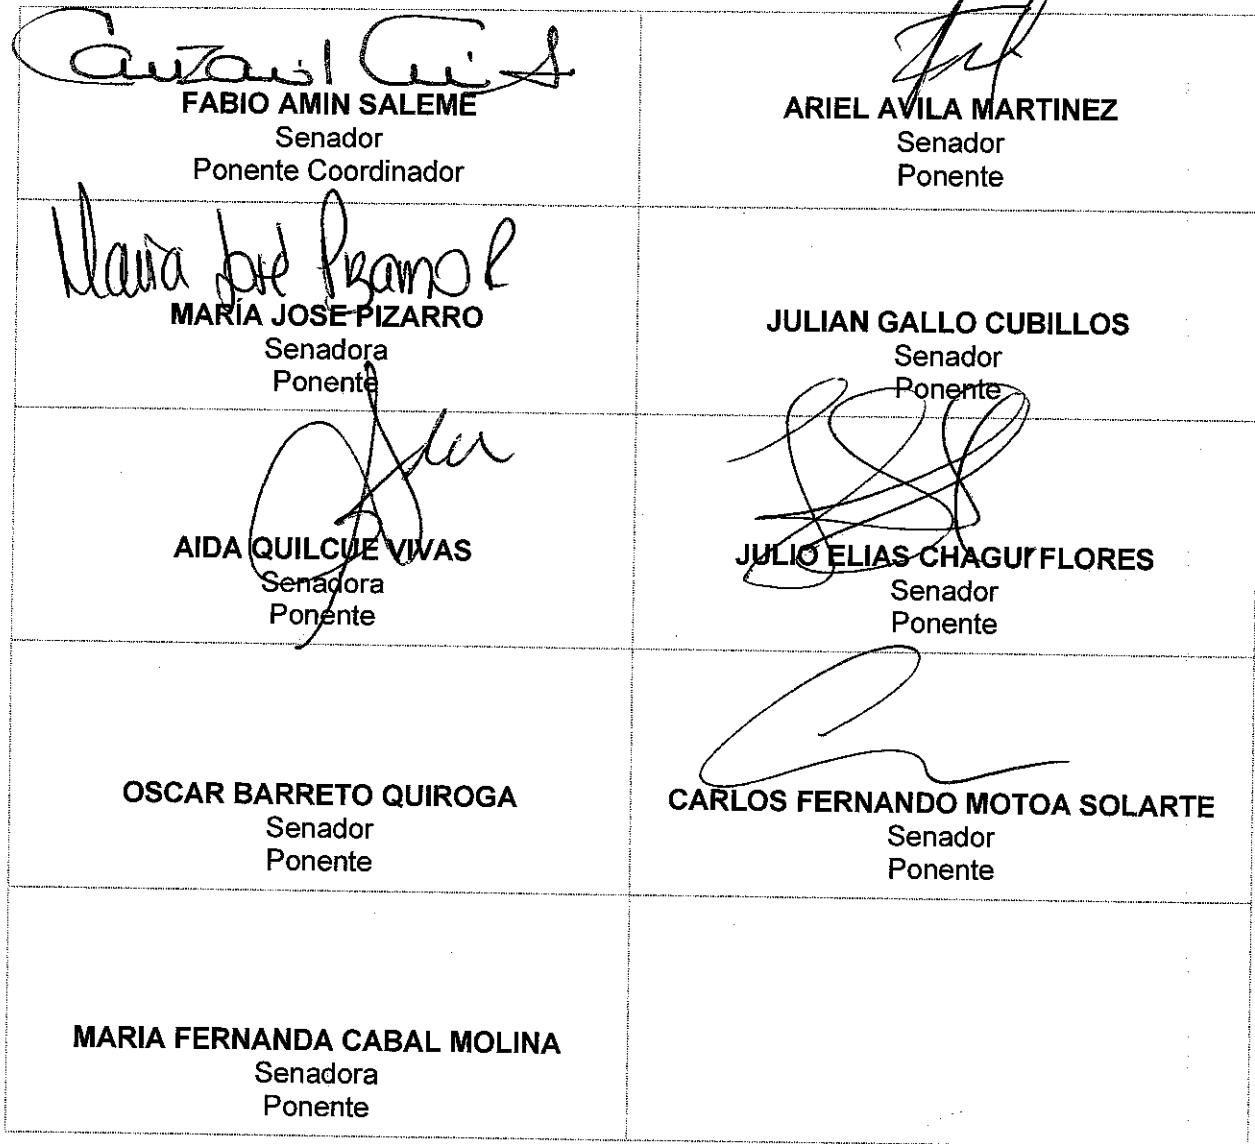 FABIO AMIN SALEME
Senador
Ponente Coordinador
ARIEL AVILA MARTINEZ
Senador
Ponente
María José Pizarro R
MARÍA JOSE PIZARRO
Senadora
Ponente
JULIAN GALLO CUBILLOS
Senador
Ponente
Aida
AIDA QUILCUE VIVAS
Senadora
Ponente
JULIO ELIAS CHAGUI FLORES
Senador
Ponente
OSCAR BARRETO QUIROGA
Senador
Ponente
CARLOS FERNANDO MOTOA SOLARTE
Senador
Ponente
MARIA FERNANDA CABAL MOLINA
Senadora
Ponente